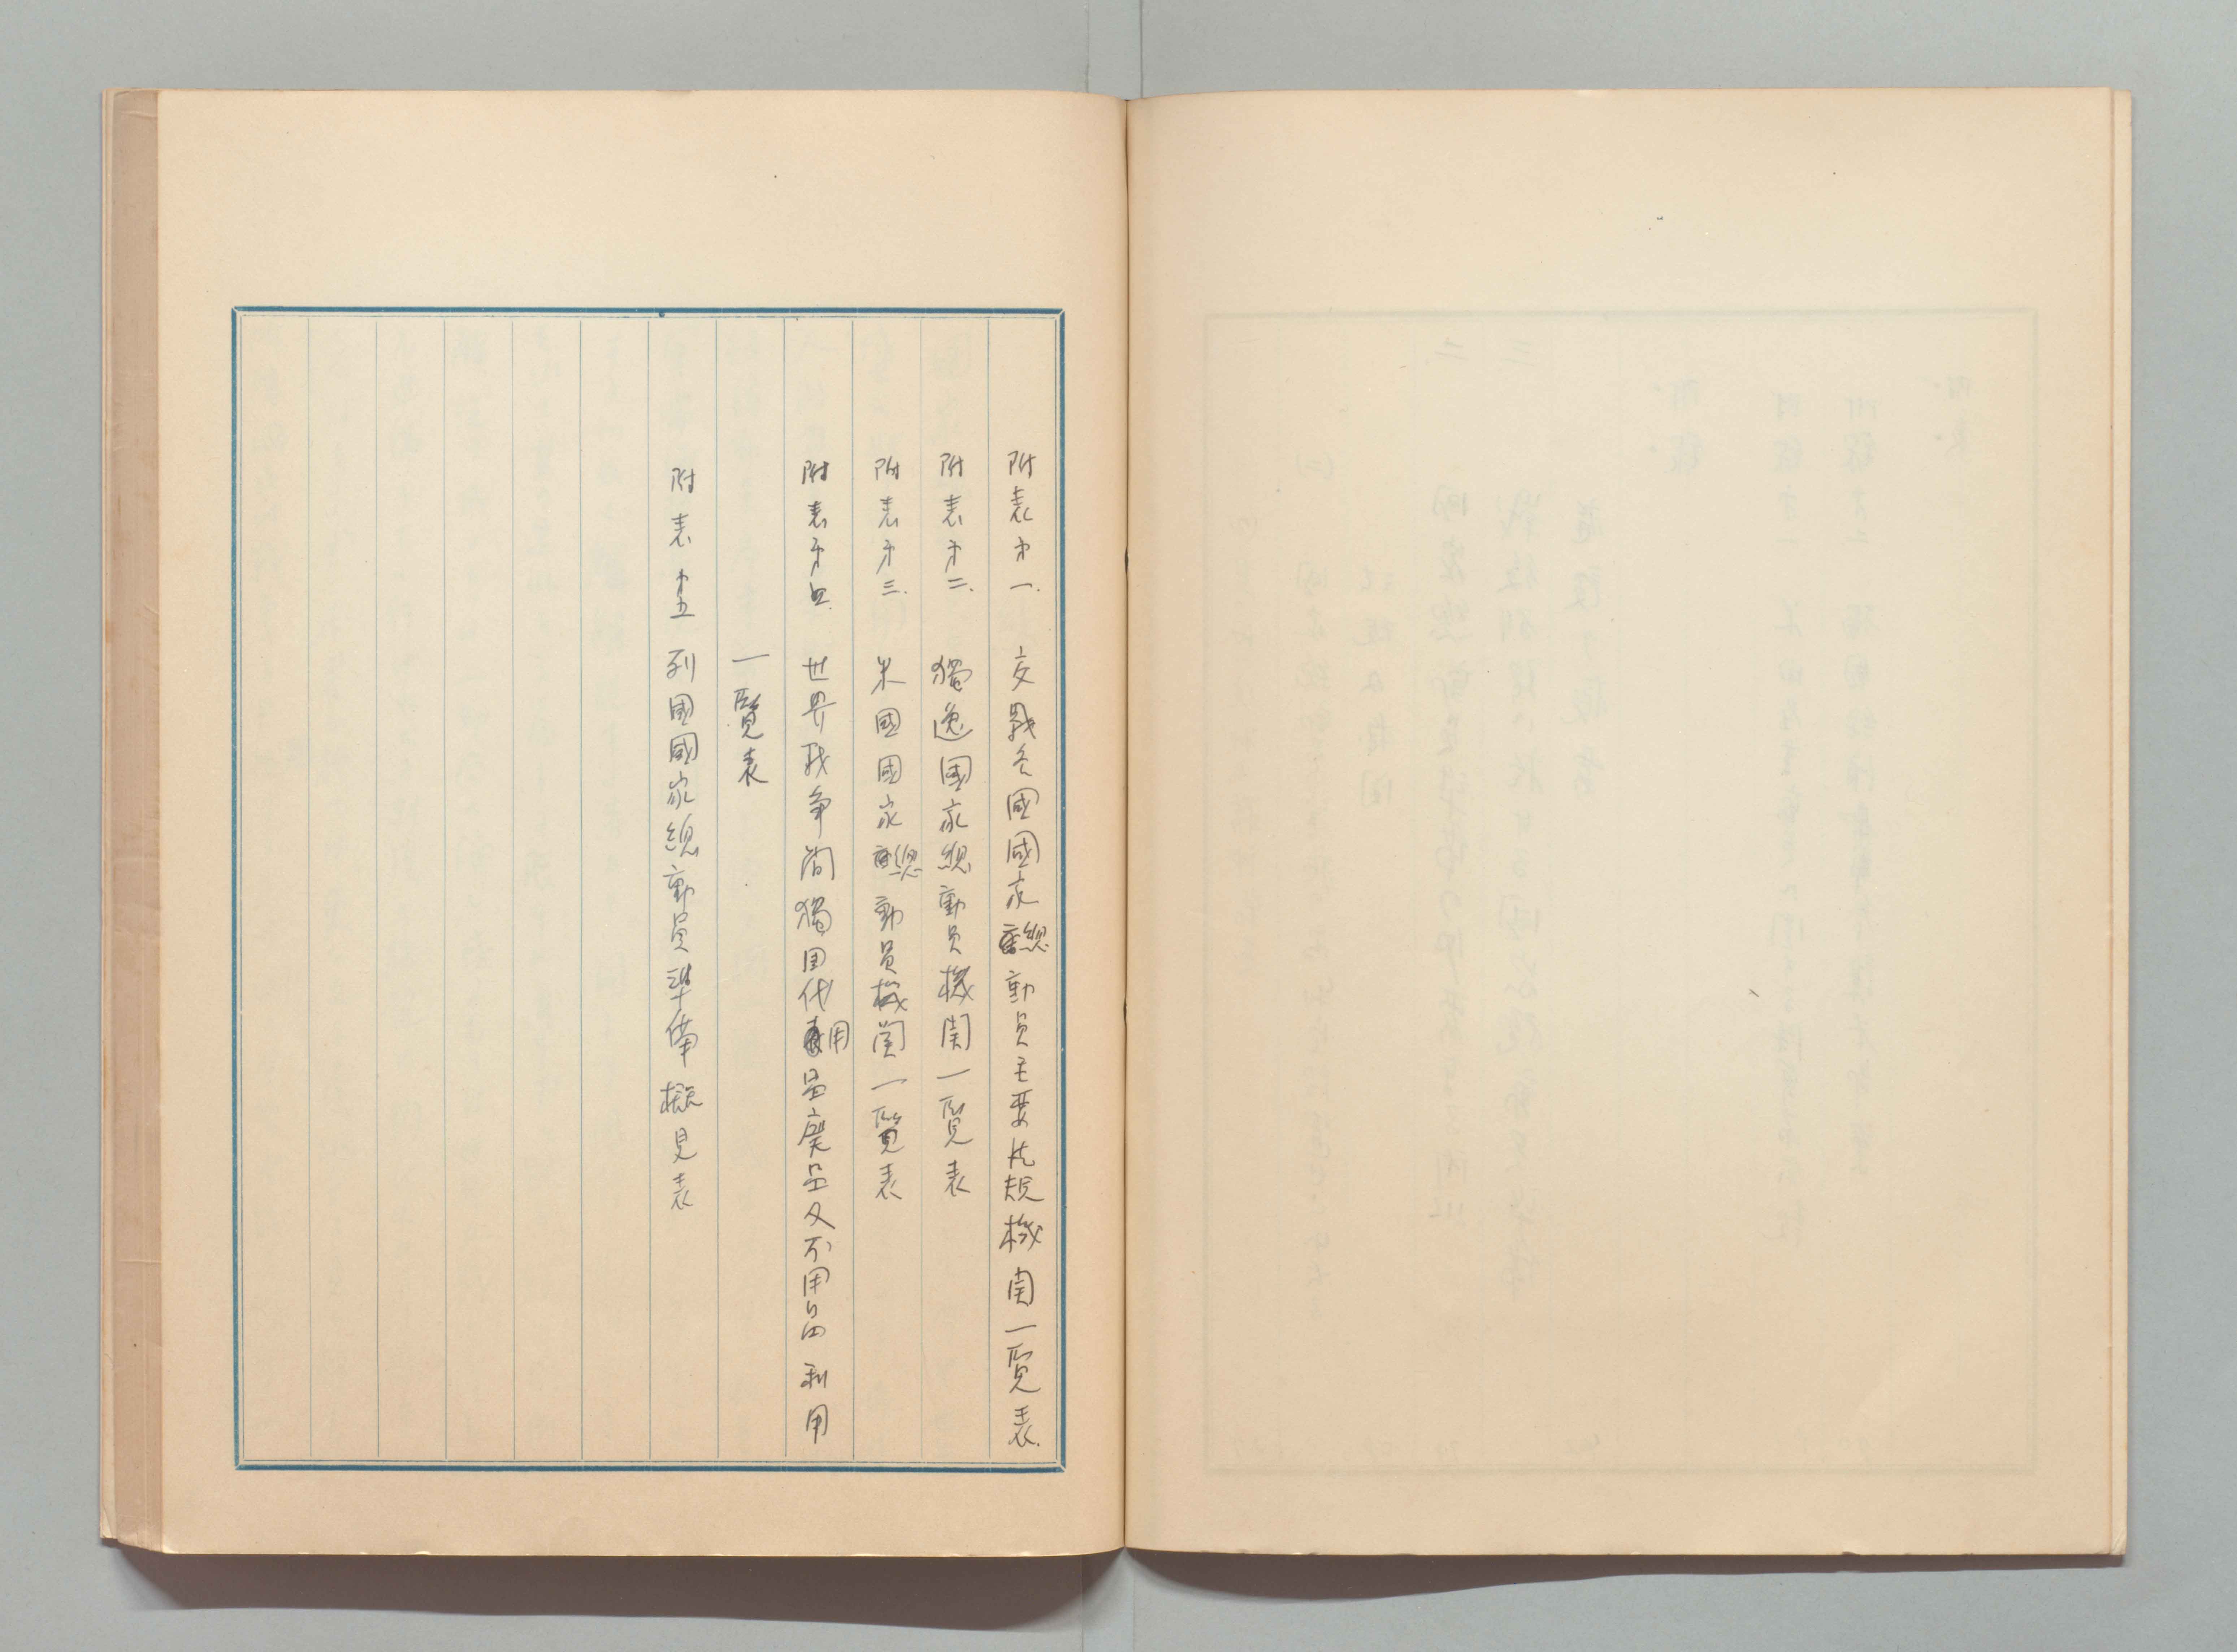 附表才一.　交戰各國國家総動員主要法規機関一覽表.
附表才二.　獨逸國家総動員機関一覽表
附表才三.　米國國家総動員機関一覽表
附表才四.　世界戦争間獨国代用品廃品及不用品利用
一覽表
附表才五　列國國家総動員準備概見表